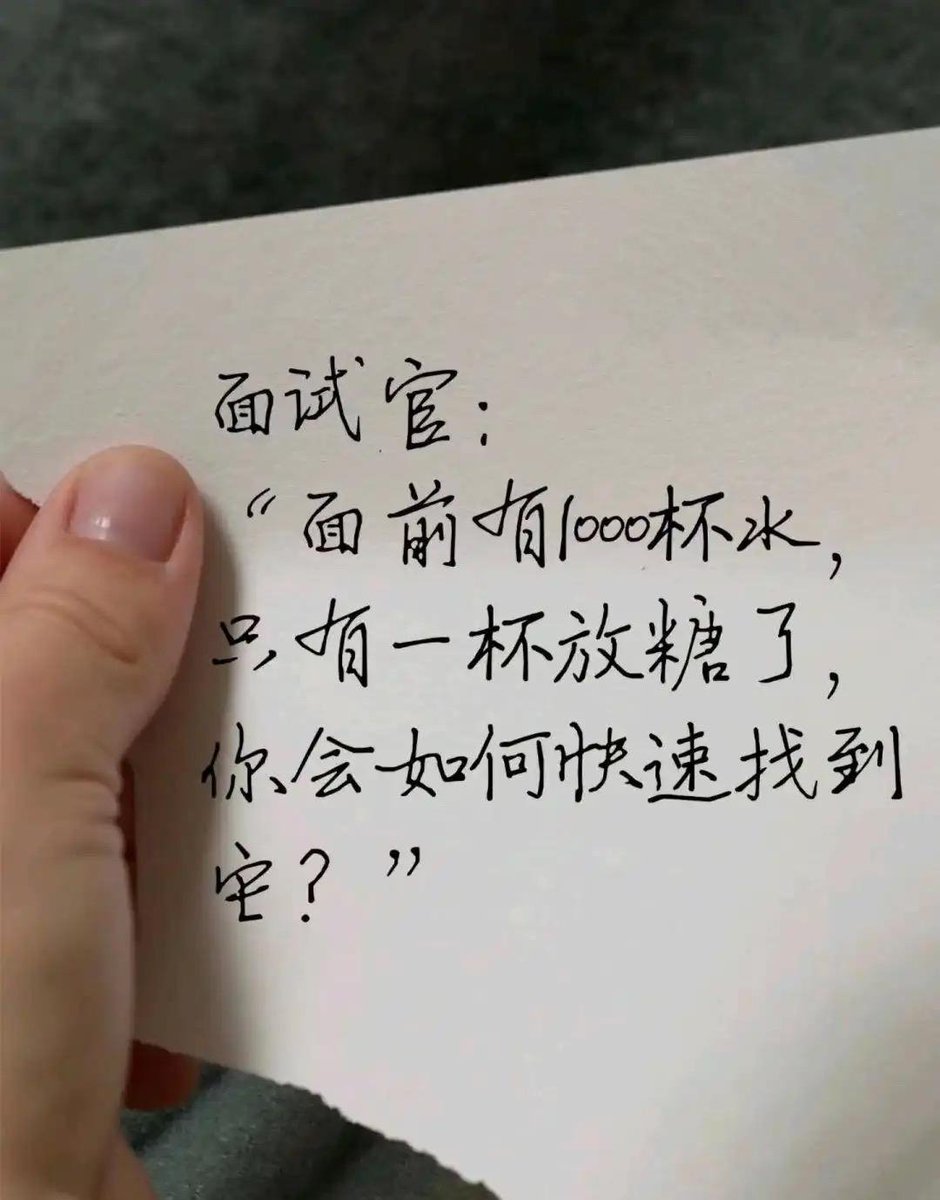 面试官：
“面前有1000杯水，
只有一杯放糖了，
你会如何快速找到
它？”